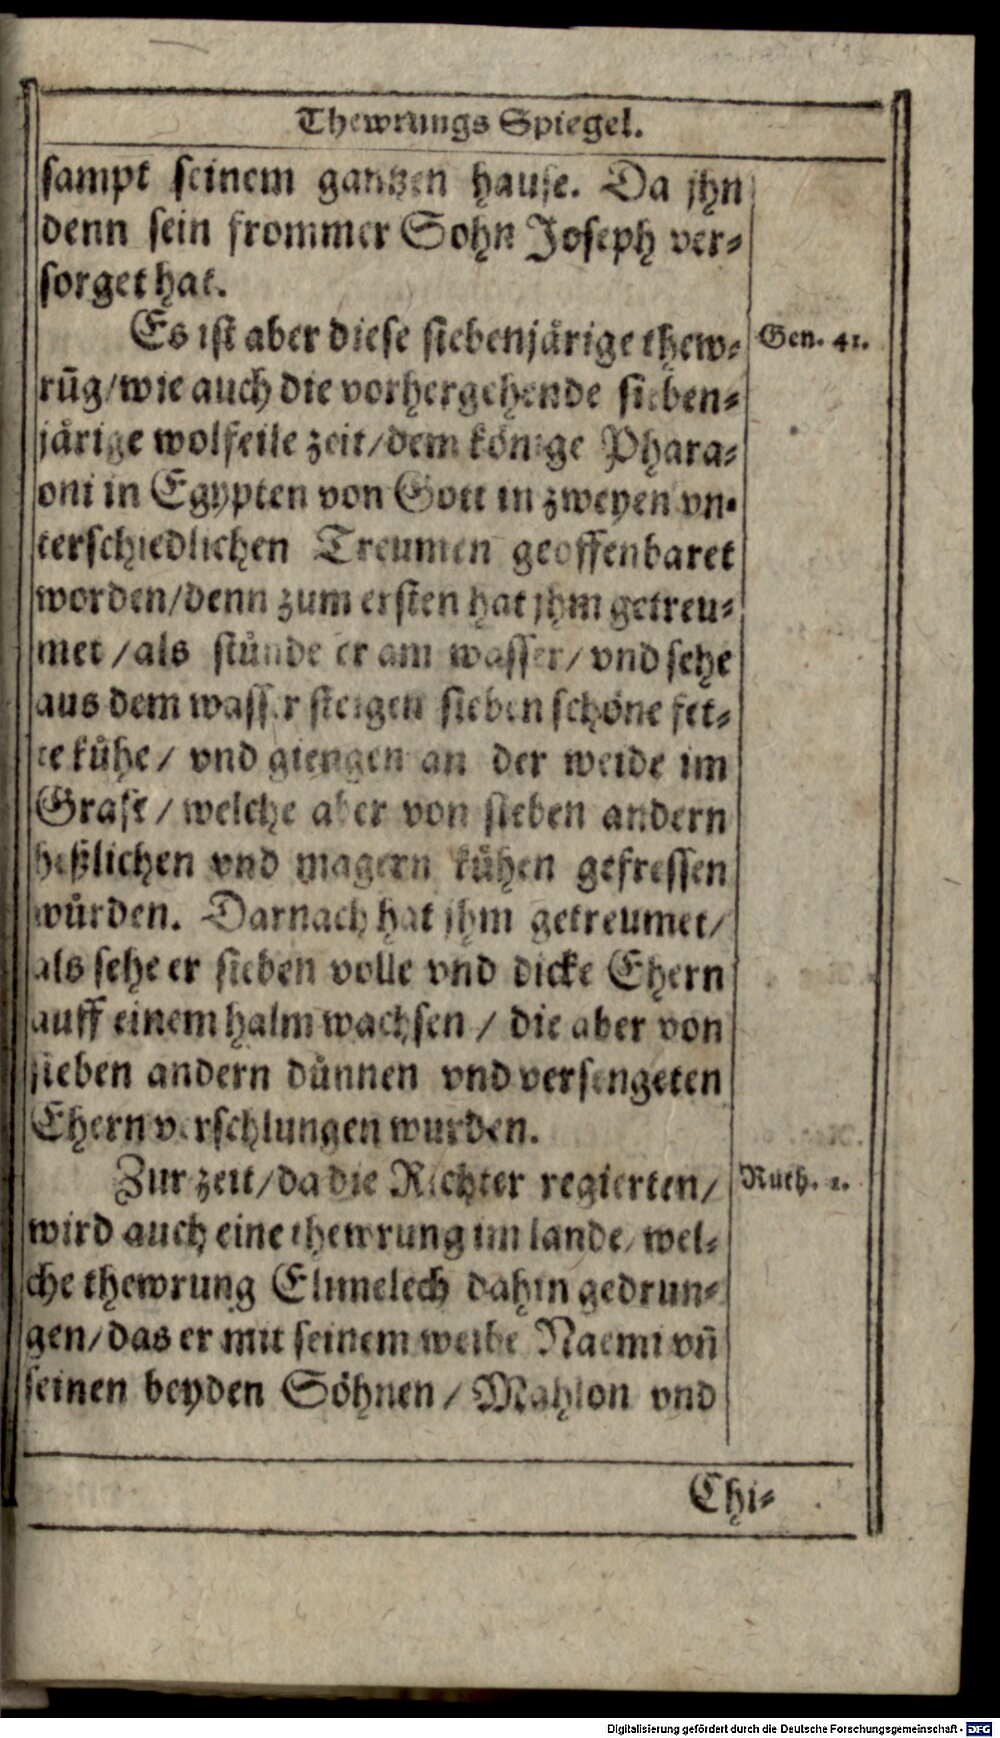 Thewrungs Spiegel.
sampt seinem gantzen hause. Da jhn
denn sein frommer Sohn Joseph ver-
sorget hat.
Es ist aber diese siebenjårige thew- Gen. 41.
rūg/wie auch die vorhergehende sieben-
jårige wolfeile zeit/dem kônige Phara-
oni in Egypten von Gott in zweyen vn-
terschiedlichen Treumen geoffenbaret
worden/denn zum ersten hat jhm getreu-
met/als stůnde er am wasser/vnd sehe
aus dem wasser steigen sieben schône fet-
te kůhe/ vnd giengen an der weide im
Grase/welche aber von sieben andern
heßlichen vnd magern kůhen gefressen
wůrden. Darnach hat jhm getreumet/
als sehe er sieben volle vnd dicke Ehern
auff einem halm wachsen/die aber von
sieben andern důnnen vnd versengeten
Ehern verschlungen wurden.
Zur zeit/da die Richter regierten/ Ruth. 1.
wird auch eine thewrung im lande/wel-
che thewrung Elimelech dahin gedrun-
gen/das er mit seinem weibe Naemi vñ
seinen beyden Sôhnen/Mahlon vnd
Chi-
Digitalisierung gefördert durch die Deutsche Forschungsgemeinschaft - DFG